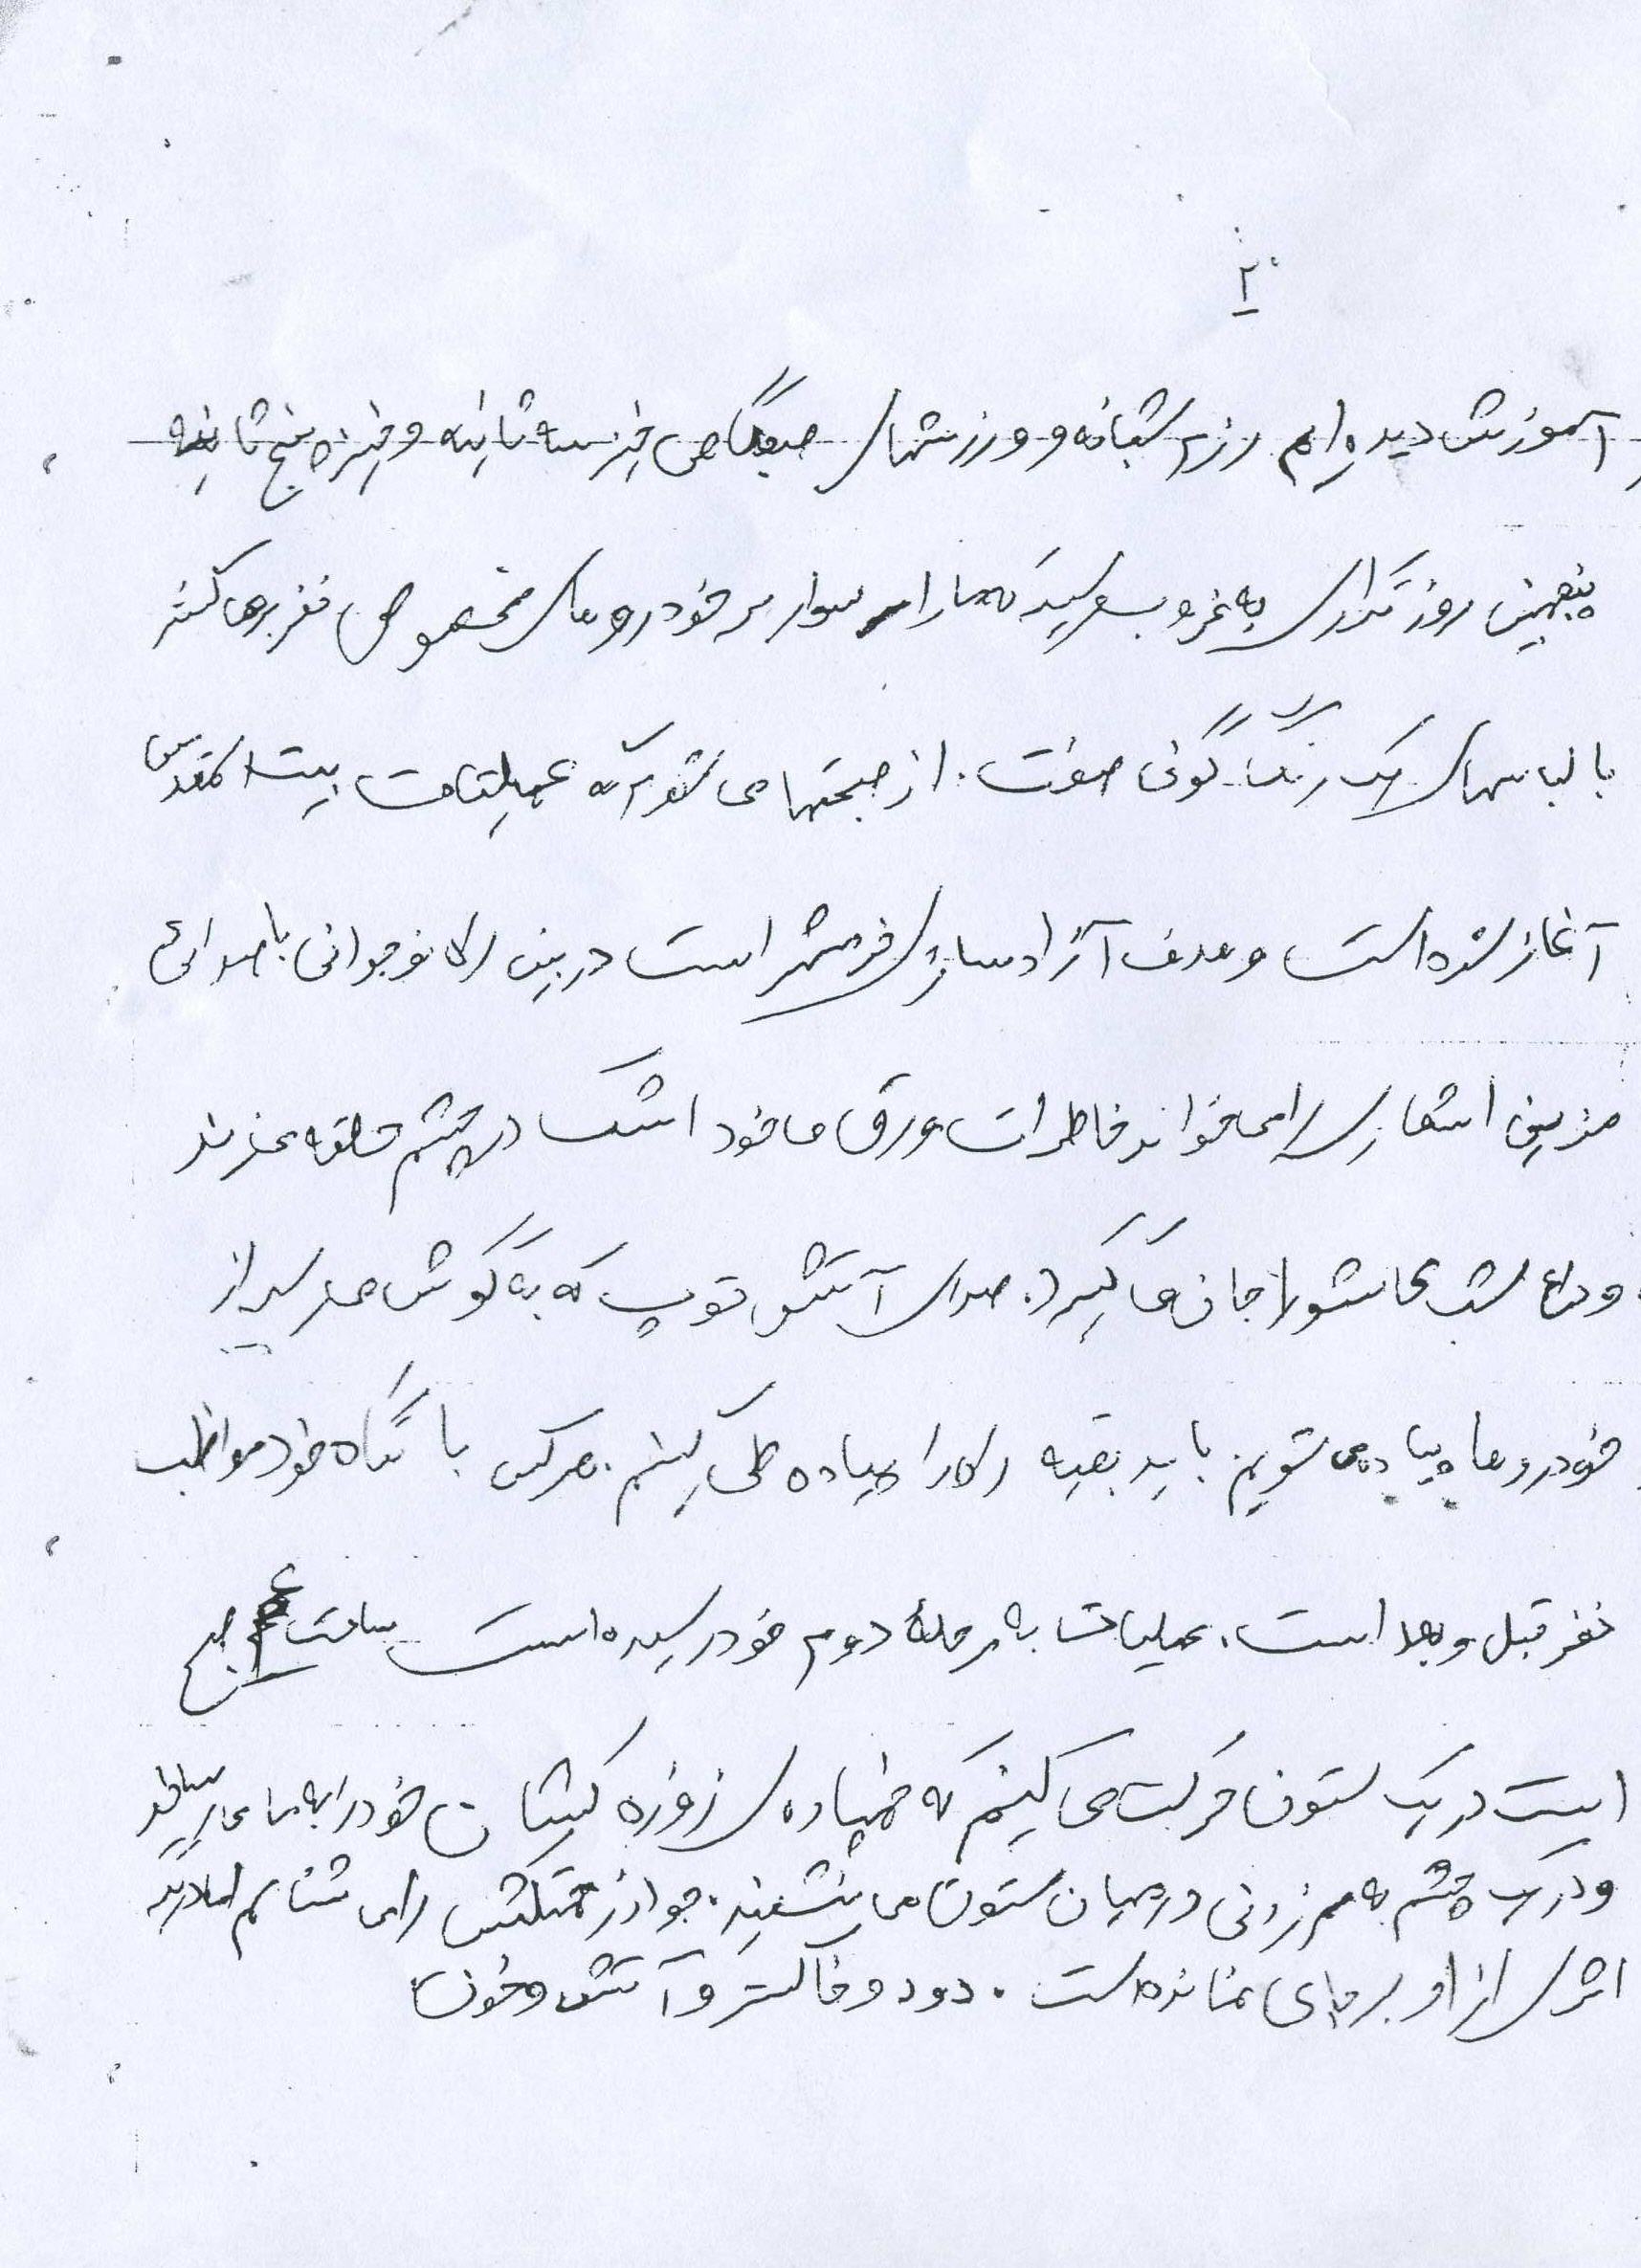 ۲
آموزش دیده ایم رزم شبانه و ورزشهای صبحگاهی خیز سه ثانیه و خیز پنج ثانیه
پنجمین روز تکراری به غروب رسید که ما را سوار بر خودروهای مخصوص نفربرها کنند
با لباسهای یک رنگ گونی صفت. از صحبتها می شنوم که عملیات بیت المقدس
آغاز شده است و هدف آزادسازی خرمشهر است در بین راه نوجوانی با صدائی
حزین اشعاری را می خواند خاطرات ورق می خورد اشک در چشم حلقه می زند
و وداع شب عاشورا جان می گیرد. صدای آتش توپ که به گوش می رسد از
خودروها پیاده می شویم باید بقیه راه را پیاده طی کنیم. هرکس با نگاه خود مواظب
نفر قبل و بعد است. عملیات به مرحلهٔ دوم خود رسیده است ساعت ۴ صبح
است در یک ستون حرکت می کنیم که خمپاره ای زوزه کشان خود را به ما می رساند
و در یک چشم به هم زدنی در میان ستون می نشیند. جواد زحمتکش را می شناسم اما دیگر
اثری از او بر جای نمانده است. دود و خاکستر و آتش و خون